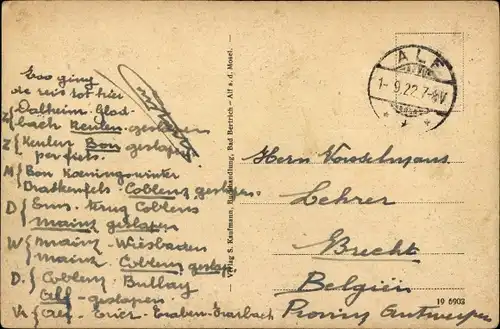 Zoo ging
de reis tot hier
Z { Dalheim-Glad-
bach Keulen-geslapen
Z { Keulen Bon geslapen
per fiets.
M { Bon Koeningswinter
Dratkenfels-Coblenz geslapen
D { Ems-terug Coblens
Mainz geslapen
W { Mainz-Wiesbaden
Mainz-Coblenz geslap
D. { Coblenz Bullay
Alf-geslapen.
V. { Alf-Traben-Trarbach
Verlag S. Kaufmann, Buchhandlung, Bad Bertrich - Alf a. d. Mosel.
ALF
1-9.22.7-8V
Herrn Vorsselmans
Lehrer
Brecht
Belgiën
Provinz Antwerpen
19 6903